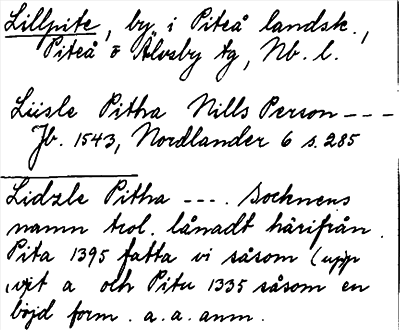 Lillpite, by i Piteå landsk.,
Piteå o Älvsby tg, Nb. l.
Liisle Pitha Nills Person ---
Jb. 1543, Nordlander 6 s. 285
Lidzle Pitha ---. Socknens
namn trol. lånadt härifrån.
Pita 1395 fatta vi såsom (upp
vist a och Pitu 1335 såsom en
böjd form. a. a. anm.